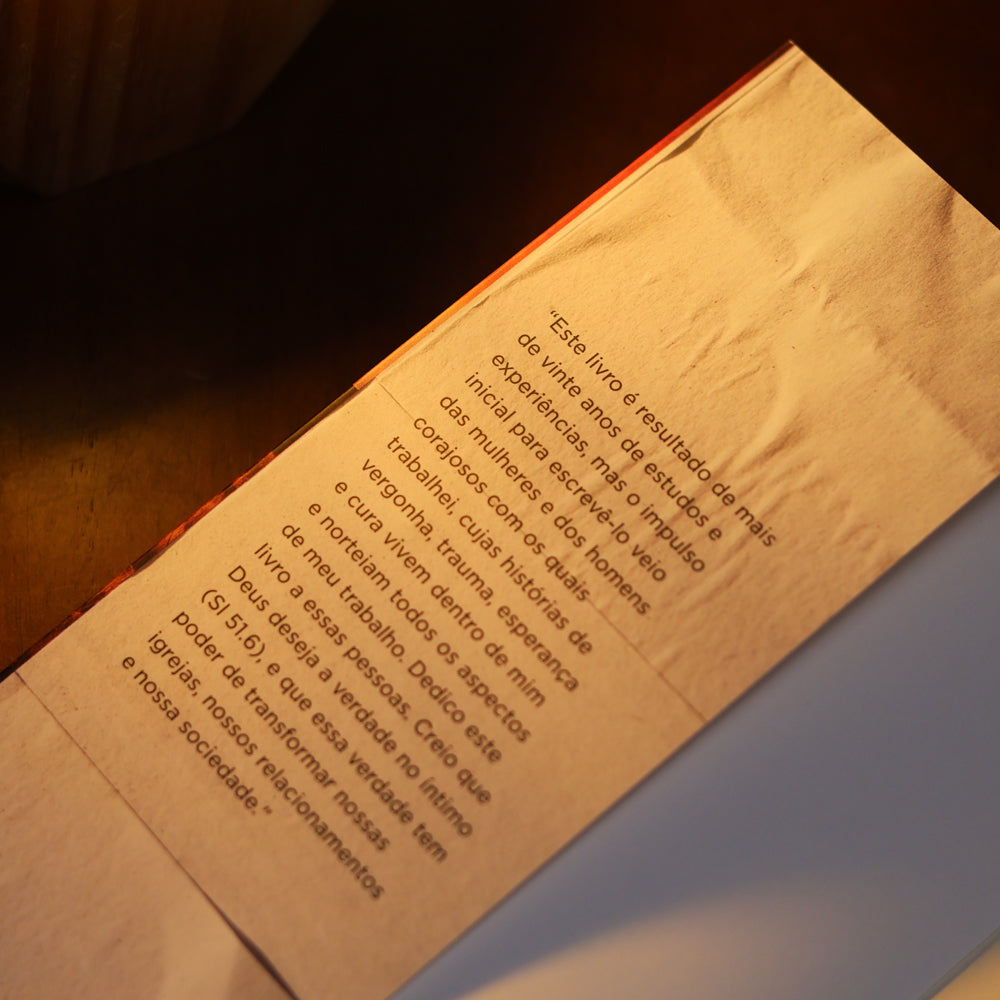 “Este livro é resultado de mais
de vinte anos de estudos e
experiências, mas o impulso
inicial para escrevê-lo veio
das mulheres e dos homens
corajosos com os quais
trabalhei, cujas histórias de
vergonha, trauma, esperança
e cura vivem dentro de mim
e norteiam todos os aspectos
de meu trabalho. Dedico este
livro a essas pessoas. Creio que
Deus deseja a verdade no íntimo
(Sl 51.6), e que essa verdade tem
poder de transformar nossas
igrejas, nossos relacionamentos
e nossa sociedade.”